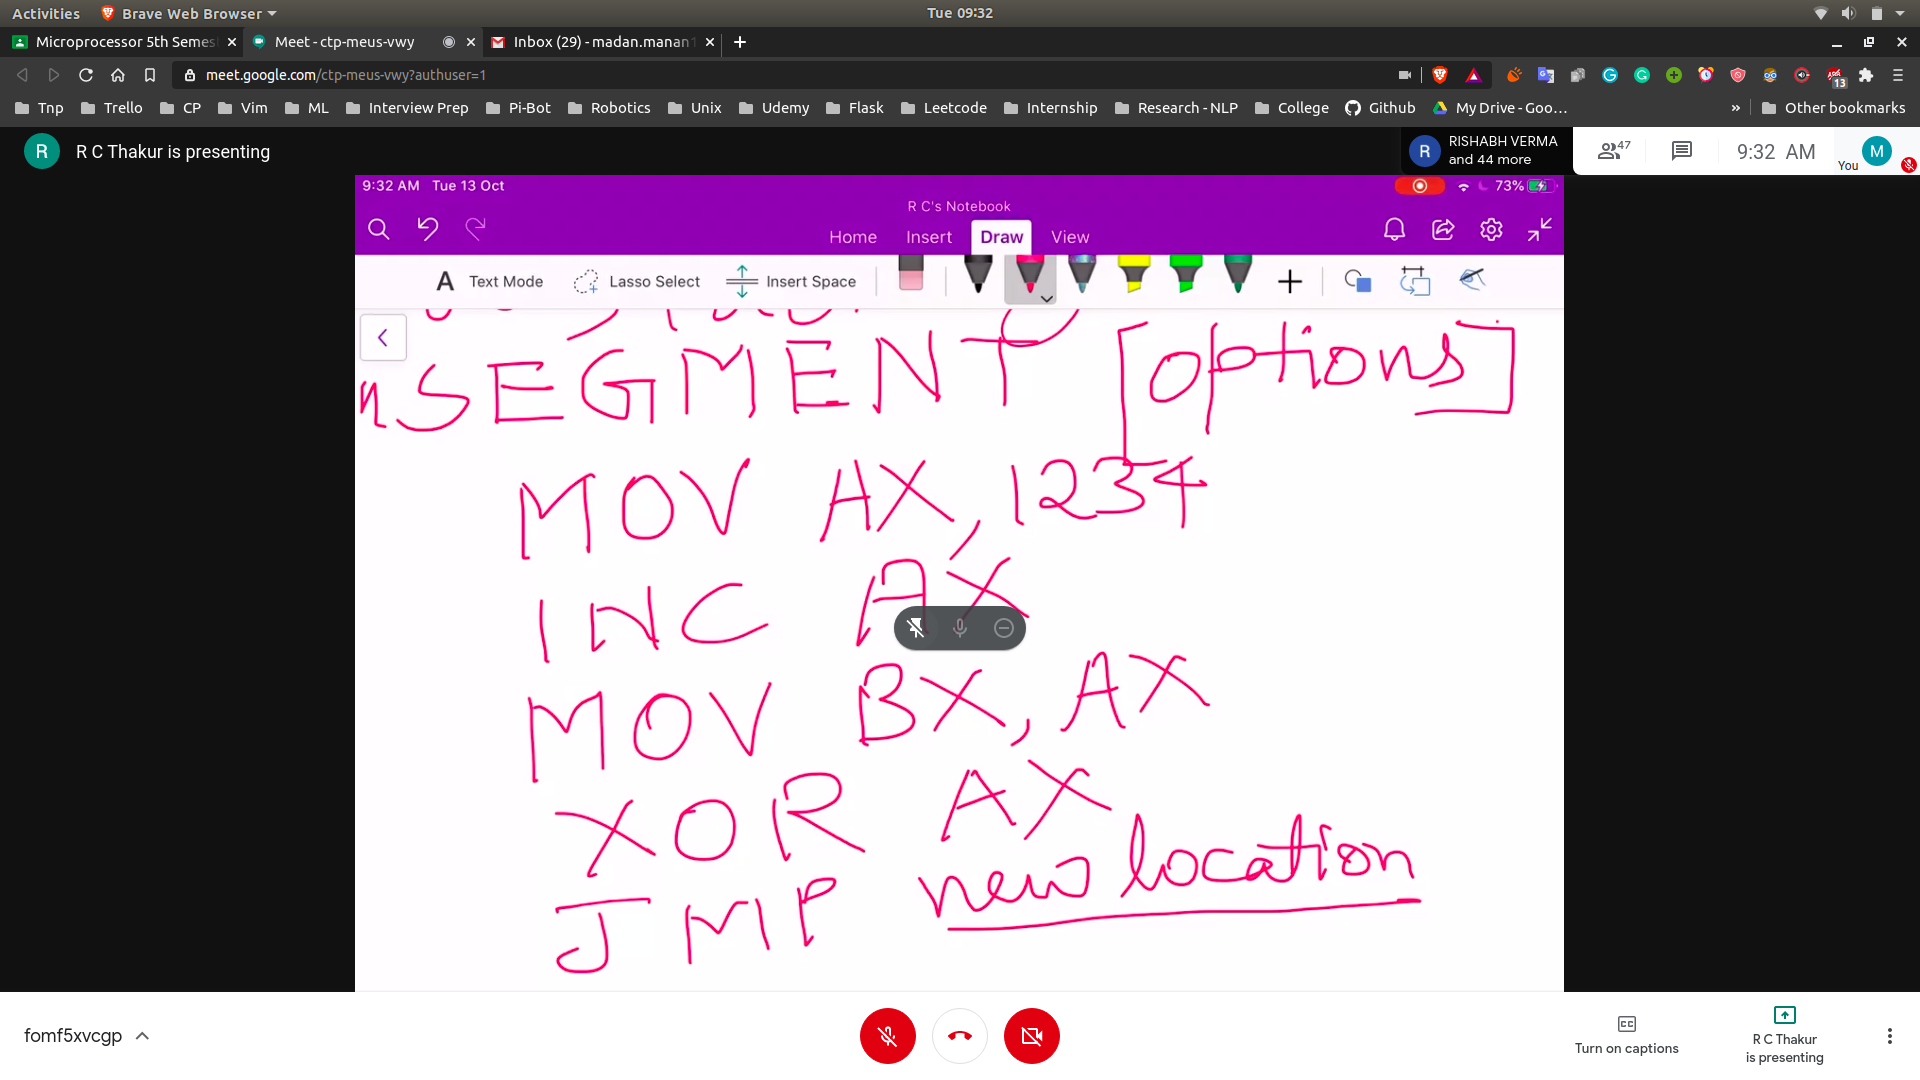 Activities Brave Web Browser Tue 09:32
Microprocessor 5th Semes Meet - ctp-meus-vwy Inbox (29) - madan.manan
meet.google.com/ctp-meus-vwy?authuser=1 13
Tnp Trello CP Vim ML Interview Prep Pi-Bot Robotics Unix Udemy Flask Leetcode Internship Research - NLP College Github My Drive - Goo... » Other bookmarks
R R C Thakur is presenting R RISHABH VERMA and 44 more 47 9:32 AM You M
9:32 AM Tue 13 Oct 73%
R C's Notebook
Home Insert Draw View
A Text Mode Lasso Select Insert Space
SEGMENT [options]
MOV AX, 1234
INC AX
MOV BX, AX
XOR AX
JMP new location
fomf5xvcgp
CC Turn on captions
R C Thakur is presenting